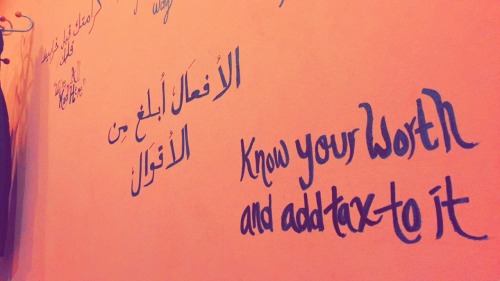 الأفعال أبلغ مِن
الأقوال
Know your Worth
and add tax to it